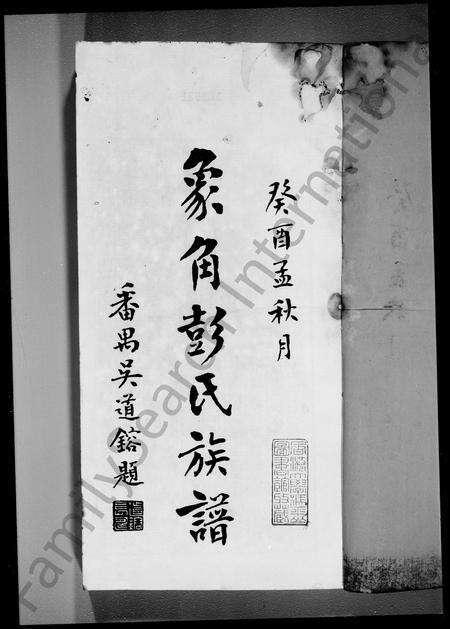 癸酉孟秋月
象角彭氏族譜
番禺吳道鎔題
FamilySearch International